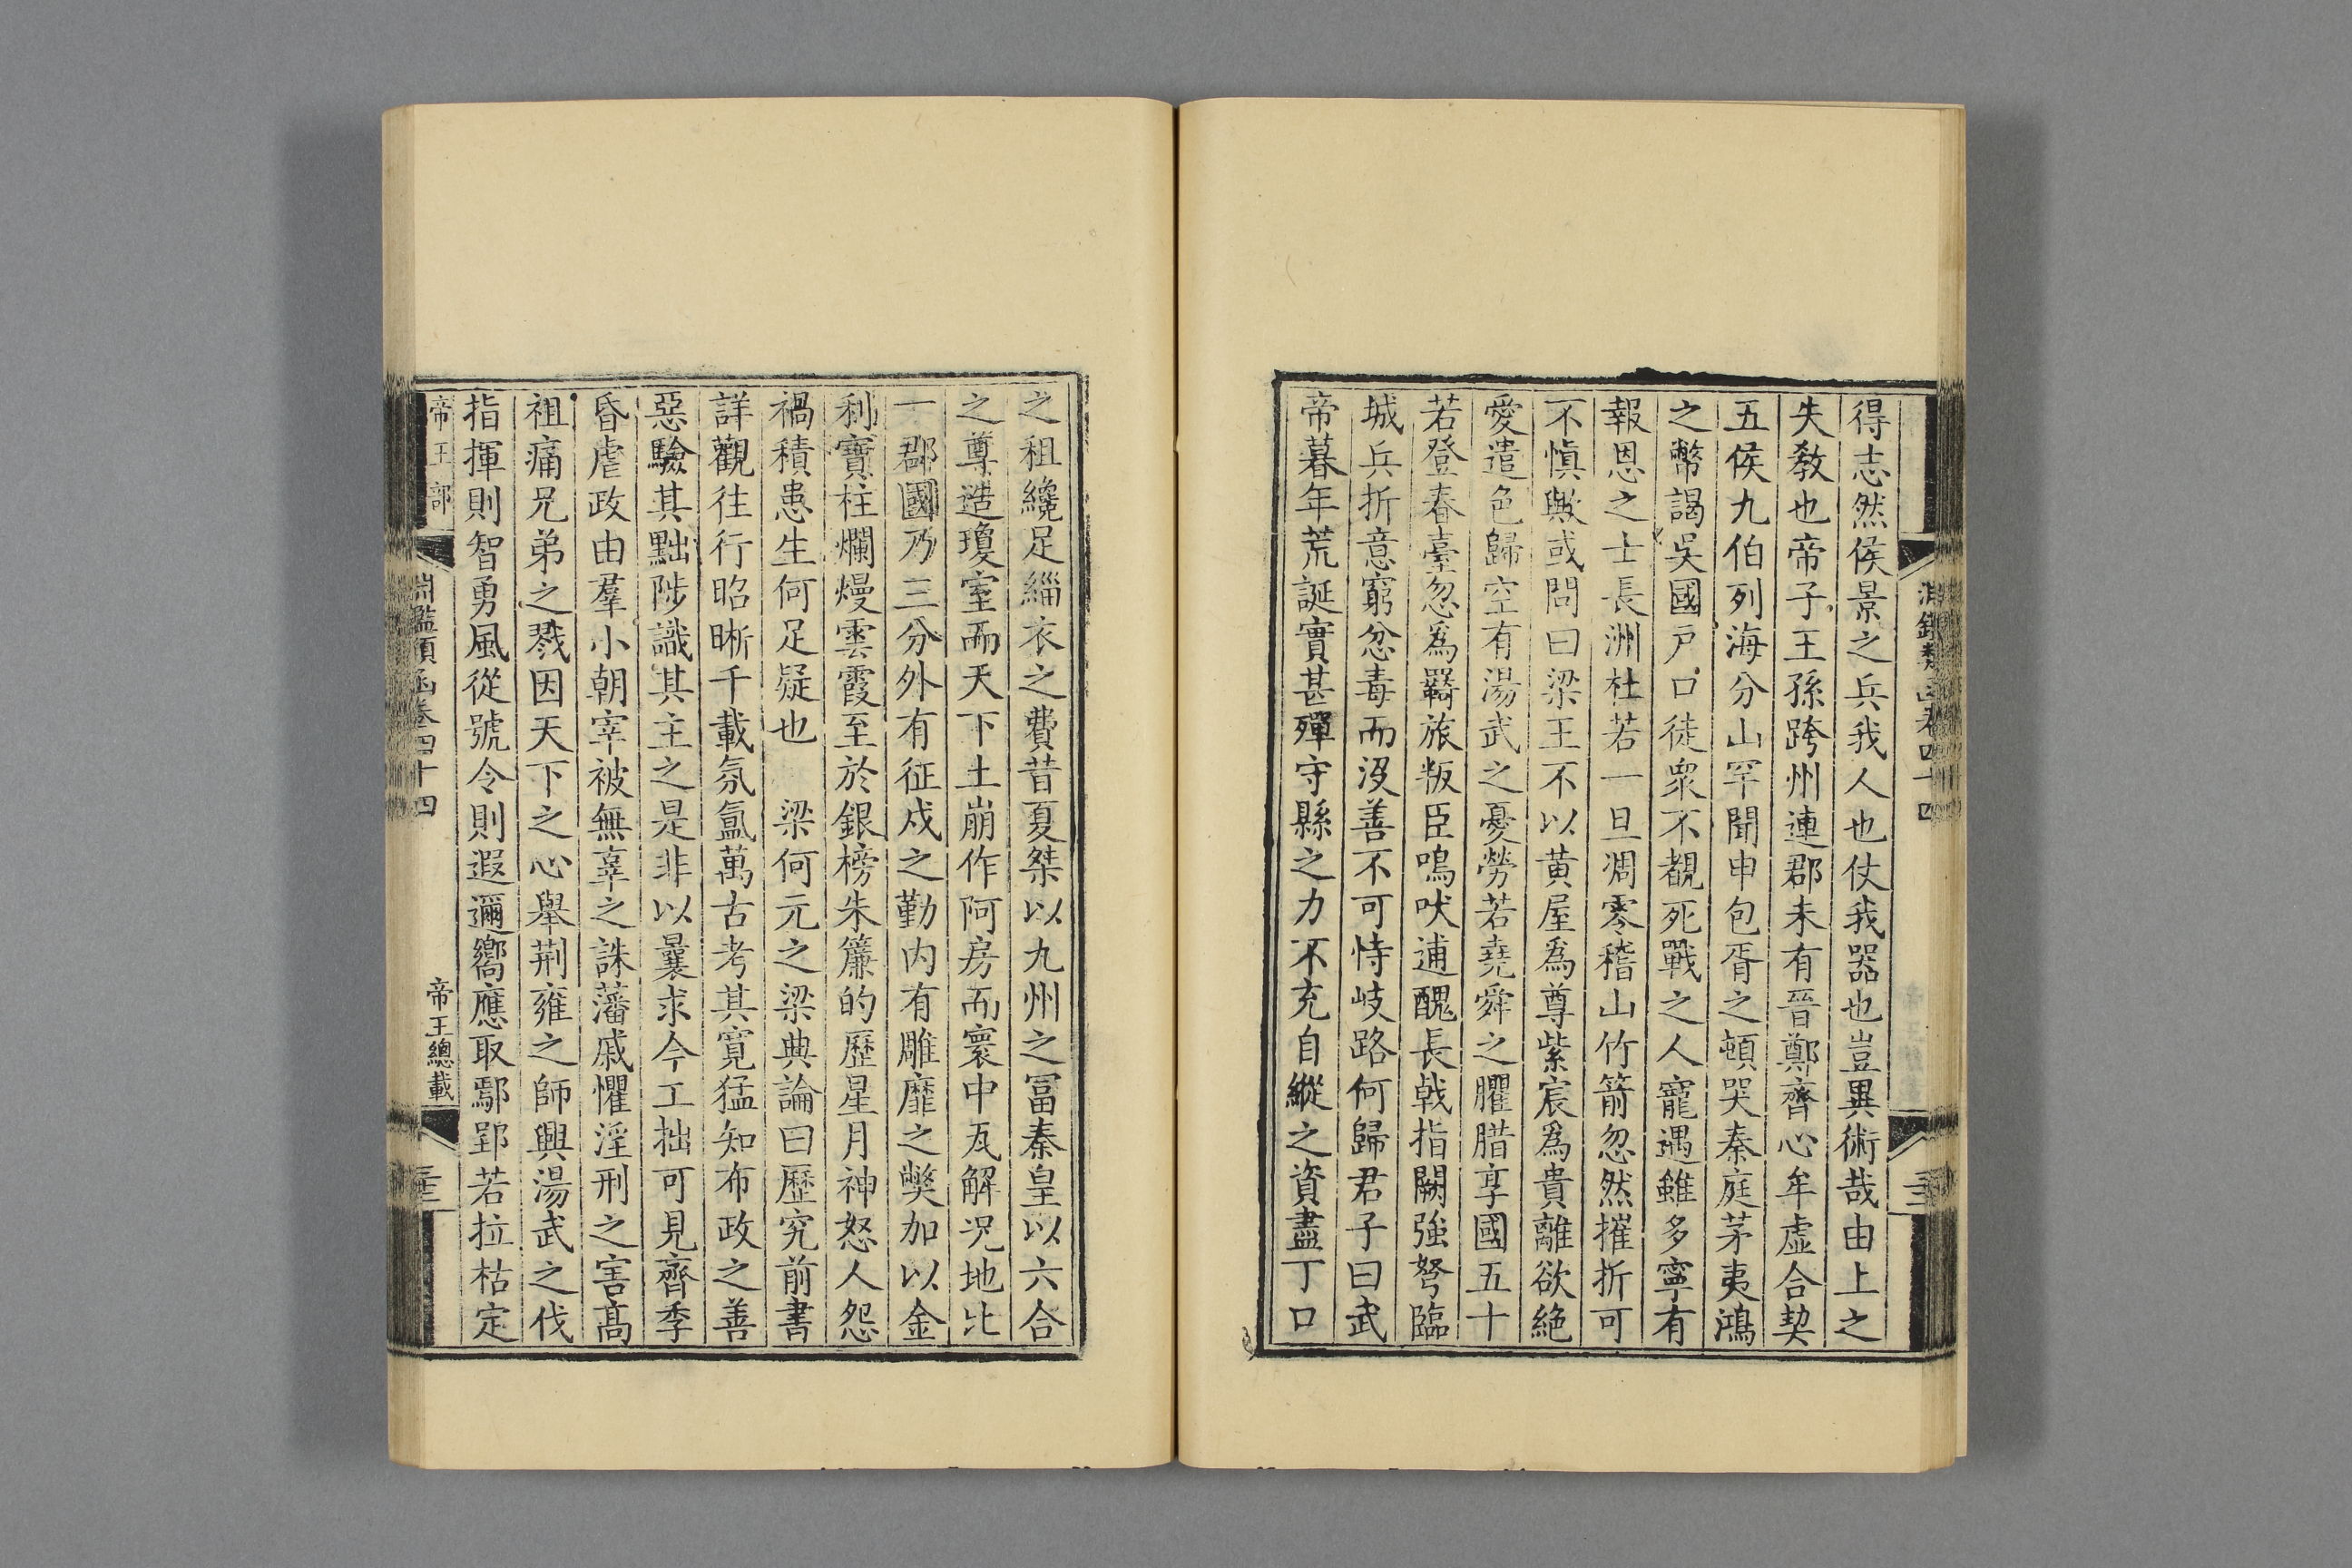 得志然侯景之兵我人也仗我器也豈異術哉由上之
失教也帝子王孫跨州連郡未有晉鄭齊心牟虛合契
五侯九伯列海分山罕聞申包胥之頓哭秦庭茅夷鴻
之幣謁吳國戶口徒衆不覩死戰之人寵遇雖多寧有
報恩之士長洲杜若一旦凋零稽山竹箭忽然摧折可
不慎歟或問曰梁王不以黃屋爲尊紫宸爲貴離欲絶
愛遣色歸空有湯武之憂勞若堯舜之臞腊享國五十
若登春臺忽爲羇旅叛臣鳴吠逋醜長戟指闕強弩臨
城兵折意窮忿毒而沒善不可恃岐路何歸君子曰武
帝暮年荒誕實甚殫守縣之力不充自縱之資盡丁口
之祖纔足緇衣之費昔夏桀以九州之冨秦皇以六合
之尊造瓊室而天下土崩作阿房而寰中瓦解况地比
一郡國乃三分外有征戍之勤内有雕靡之獘加以金
刹寶柱爛熳雲霞至於銀榜朱簾的歷星月神怒人怨
禍積患生何足疑也　梁何元之梁典論曰歷究前書
詳觀往行昭晰千載氛氳萬古考其寛猛知布政之善
惡驗其黜陟識其主之是非以曩求今工拙可見齊季
昏虐政由羣小朝宰被無辜之誅藩戚懼淫刑之害高
祖痛兄弟之戮因天下之心舉荆雍之師興湯武之伐
指揮則智勇風從號令則遐邇嚮應取鄢郢若拉枯定
帝王部　淵鑑類函卷四十四　帝王總載